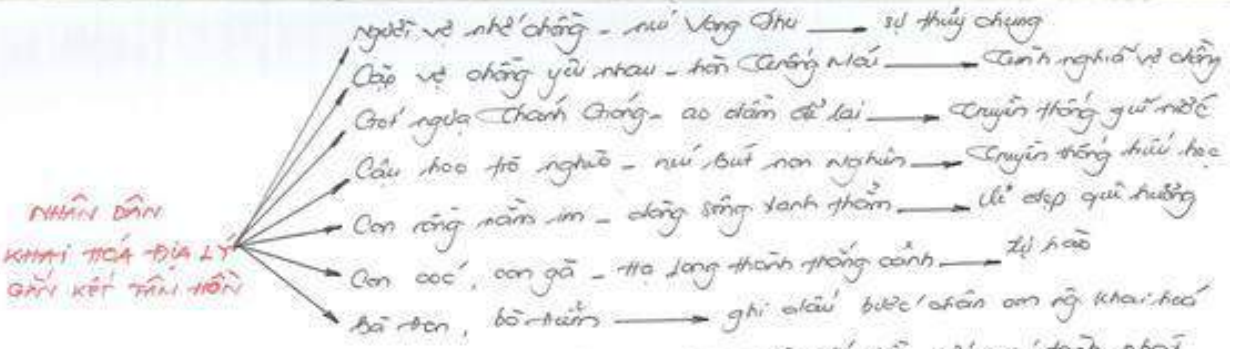 Người vợ nhớ chồng - núi Vọng Phu → sự thủy chung
Cặp vợ chồng yêu nhau - hòn Trống Mái → Tình nghĩa vợ chồng
Gót ngựa Thánh Gióng - ao đầm để lại → Truyền thống giữ nước
Cậu học trò nghèo - núi Bút non Nghiên → Truyền thống hiếu học
Con rồng nằm im - dòng sông xanh thẳm → vẻ đẹp quê hương
Con cóc, con gà - Hạ Long thành thắng cảnh → tự hào
Bà Đen, bà Điểm → ghi dấu bước chân ông khai hoá
NHÂN DÂN
KHAI HOÁ ĐỊA LÝ
GẮN KẾT TÂM HỒN